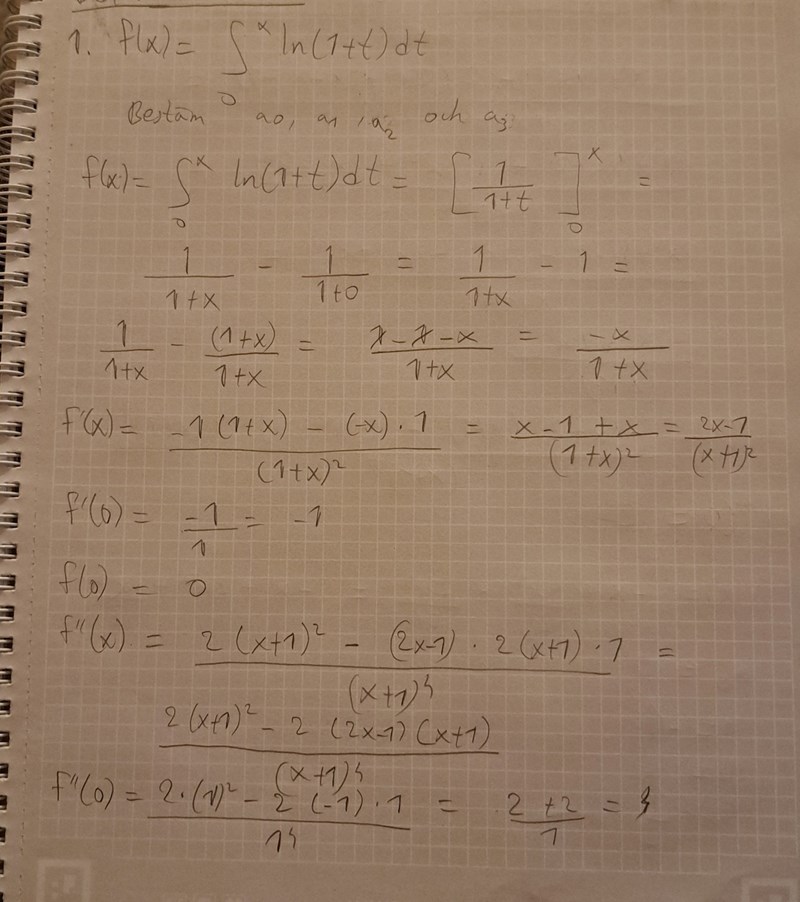 1. f(x) = ∫₀ˣ ln(1+t) dt
Bestäm a0, a1, a2 och a3
f(x) = ∫₀ˣ ln(1+t) dt = [1/(1+t)]₀ˣ =
1/(1+x) - 1/(1+0) = 1/(1+x) - 1 =
1/(1+x) - (1+x)/(1+x) = (1-1-x)/(1+x) = -x/(1+x)
f'(x) = (-1(1+x) - (-x)·1)/(1+x)² = (x-1+x)/(1+x)² = (2x-1)/(x+1)²
f'(0) = -1/1 = -1
f(0) = 0
f''(x) = (2(x+1)² - (2x-1)·2(x+1)·1)/(x+1)⁴ =
(2(x+1)² - 2(2x-1)(x+1))/(x+1)⁴
f''(0) = (2·(1)² - 2(-1)·1)/1⁴ = (2+2)/1 = 4